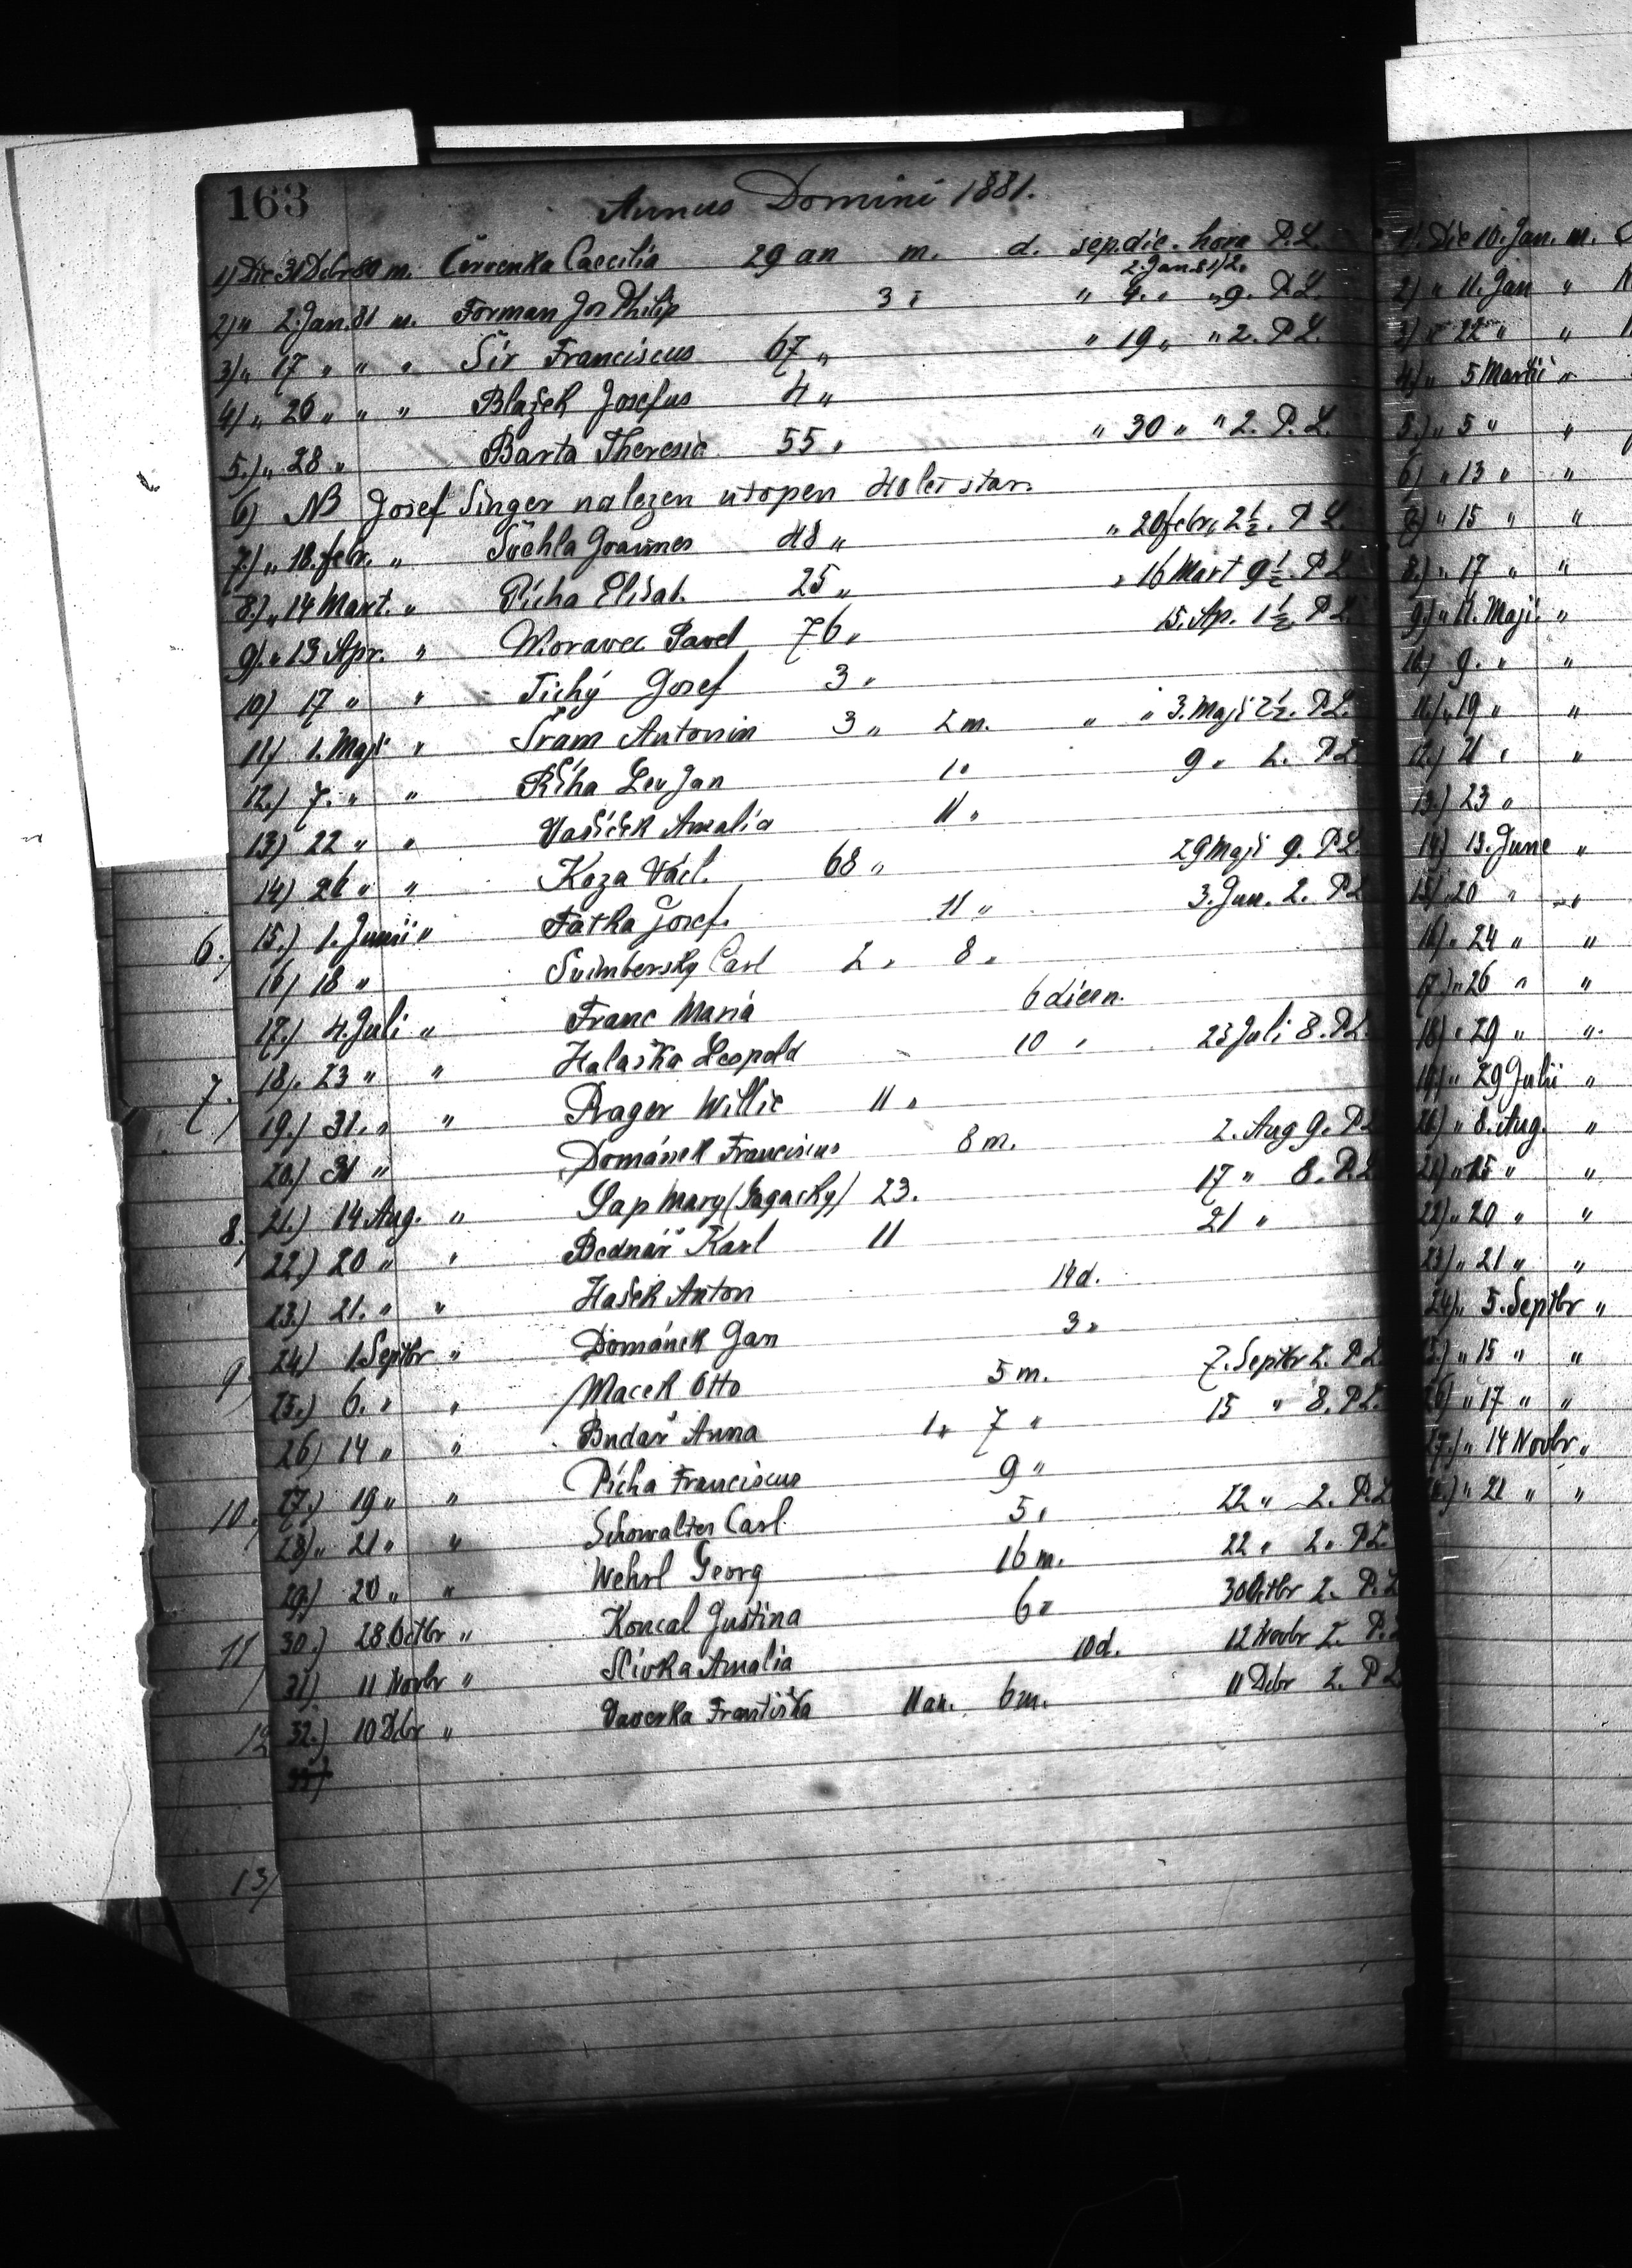 163
Annus Domini 1881.
1) Die 31 Debr 80 m. Červenka Caecilia 29 an m. d. sep. die. hora P.L.
2. Jan. 81/2.
2) " 2. Jan. 81 m. Forman Jos Philip 3 " " 4. " " 9. P.L.
3) " 17 " " " Šír Franciscus 67 " " 19 " " 2. P.L.
4) " 26 " " " Blažek Josefus 4 "
5.) " 28 " Barta Theresia 55 " " 30 " " 2. P.L.
6) NB Josef Singer nalezen utopen 40 let star.
7.) " 18. febr. " Švehla Joannes 48 " " 20 febr. " 2 1/2. P.L.
8.) " 14 Mart. " Pícha Elisab. 25 " " 16 Mart 9 1/2. P.L.
9). " 13 Apr. " Moravec Pavel 76 " 15. Ap. 1 1/2. P.L.
10) 17 " " Tichý Josef 3 "
11) 1. Maji " Šram Antonin 3 " 2 m. " " 3. Maji 2 1/2. P.L.
12.) 7. " " Říha Lev Jan 1 " 9 " 2. P.L.
13) 22 " " Vašíček Amalia 11 "
14) 26 " " Koza Václ. 68 " 29 Maji 9. P.L.
6.) 15.) 1. Junii " Fatka Josef. 11 " 3. Jun. 2. P.L.
16) 18 " Svimbersky Carl 2 " 8 "
17.) 4. Juli " Franc Maria 6 dien.
7.) 18). 23 " " Halaška Leopold 10 " 23 Juli 8. P.L.
19.) 31. " " Prager Willie 11 "
20.) 31 " Domának Franciscus 8 m. 2. Aug 9. P.L.
8.) 21.) 14 Aug. " Sap Mary (Sagacky) 23. 17 " 8. P.L.
22.) 20 " " Bednář Karl 11 21 "
23.) 21. " " Hašek Anton 14 d.
9) 24) 1. Septbr " Domának Jan 3 "
25.) 6. " " Macek Otto 5 m. 7. Septbr 2. P.L.
26) 14 " " Budař Anna 1 " 7 " 15 " 8. P.L.
10.) 27.) 19 " " Pícha Franciscus 9 "
28) " 21 " " Schowalter Carl. 5 " 22 " 2. P.L.
29.) 20 " " Wehrl Georg 16 m. 22 " 2. P.L.
11) 30.) 28 Octbr " Koncal Justina 6 " 30 Octbr 2. P.L.
31). 11 Novbr " Slivka Amalia 10 d. 12 Novbr 2. P.L.
12 32.) 10 Dbr " Vaverka Františka 11 an. 6 m. 11 Debr 2. P.L.
13)
1). Die 10. Jan. m.
2) " 11. Jan "
3) " 22 " "
4) " 5 Martii "
5.) " 5 " "
6) " 13 " "
7) " 15 " "
8.) " 17 " "
9.) " 11. Maji. "
10.) 9. " "
11.) " 19 " "
12.) 21 " "
13.) 23 "
14) 13. June "
15) 20 " "
16). 24 " "
17) " 26 " "
18) " 29 " "
19) " 29 Julii "
20) " 8. Aug. "
21) " 15 " "
22) " 20 " "
23) " 21 " "
24) " 5. Septbr "
25.) " 15 " "
26) " 17 " "
27.) " 14 Novbr "
28.) " 21 " "